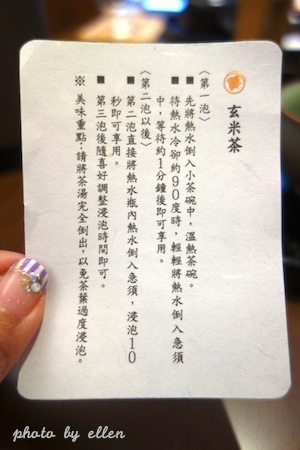 玄米茶
〈第一泡〉
■ 先將熱水倒入小茶碗中，溫熱茶碗。
■ 待熱水冷卻約90度時，輕輕將熱水倒入急須
中，等待約1分鐘後即可享用。
〈第二泡以後〉
■ 第二泡直接將熱水瓶內熱水倒入急須，浸泡10
秒即可享用。
■ 第三泡後隨喜好調整浸泡時間即可。
※ 美味重點：請將茶湯完全倒出，以免茶葉過度浸泡。
photo by ellen